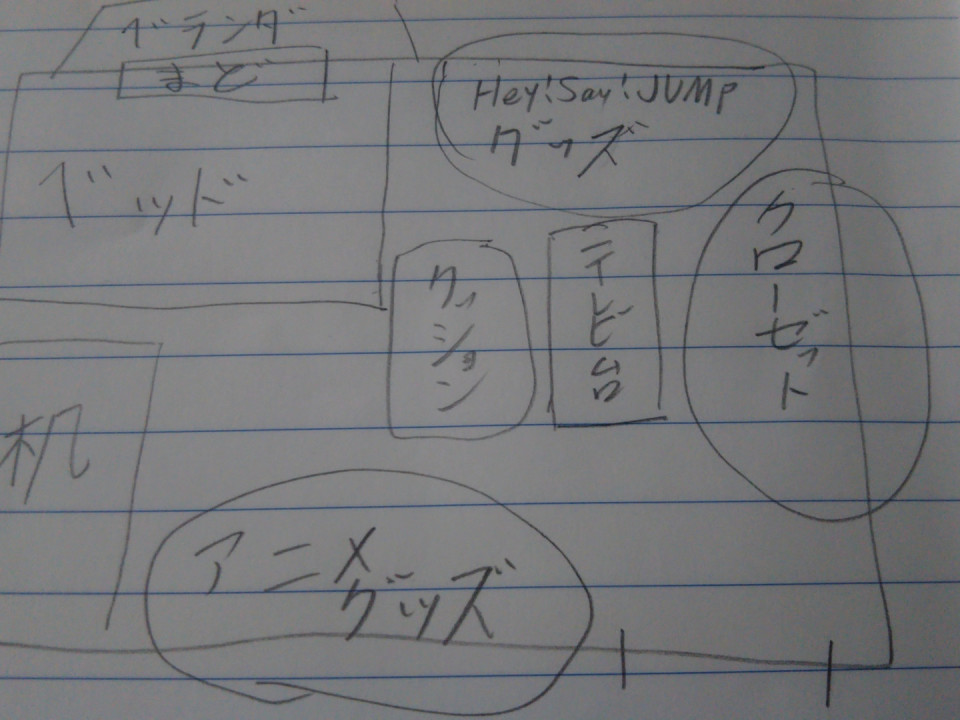 ベランダ
まど
Hey!Say!JUMP
グッズ
ベッド
クローゼット
テレビ台
クッション
机
アニメ
グッズ